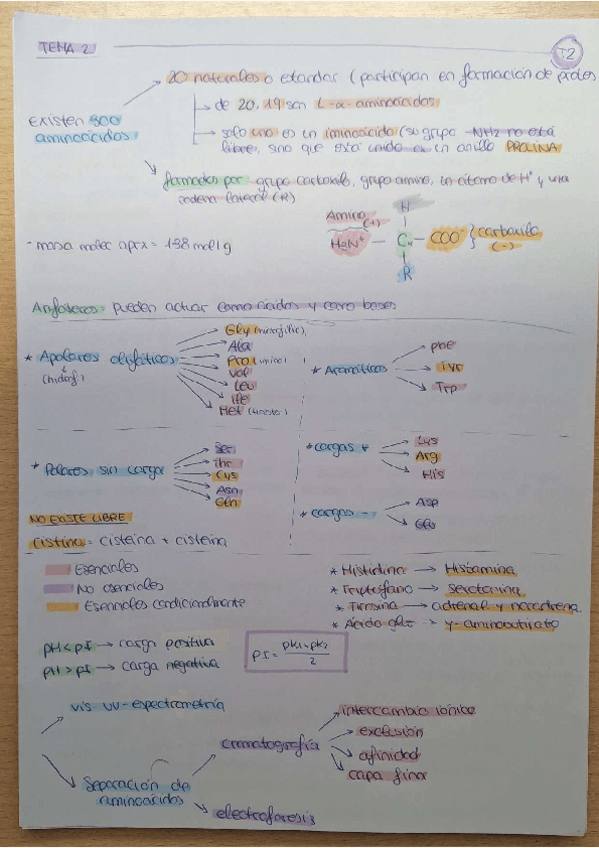 TEMA 2
T2
20 naturales o estandar (participan en formación de protes
existen 300
aminoácidos
de 20, 19 son L-α-aminoácidos
solo uno es un iminoácido (su grupo -NH2 no está
libre, sino que está unido en un anillo PROLINA
formados por grupo carboxilo, grupo amino, un átomo de H⁺ y una
cadena lateral (R)
- masa molec aprx = 138 mol/g
Amino
(+)
H
H3N⁺ — Cα — COO
R
carboxilo
(-)
Anfoteros: pueden actuar como ácidos y como bases
* Apolares alifáticos
Gly
Ala
Pro (imino)
Val
Leu
Ile
Met
* Aromáticos
Phe
Tyr
Trp
* Polares sin carga
Ser
Thr
Cys
Asn
Gln
* cargas +
Lys
Arg
His
* cargas -
Asp
Glu
NO EXISTE LIBRE
Cistina = cisteína + cisteína
Esenciales
No esenciales
Esenciales condicionalmente
* Histidina → Histamina
* Triptófano → serotonina
* Tirosina → adrenal y noradrena.
* Ácido glu → γ-aminobutirato
pH < pI → carga positiva
pH > pI → carga negativa
pI = pK1 + pK2 / 2
vis-uv-espectrometría
Separación de
aminoácidos
cromatografía
intercambio iónico
exclusión
afinidad
capa fina
electroforesis